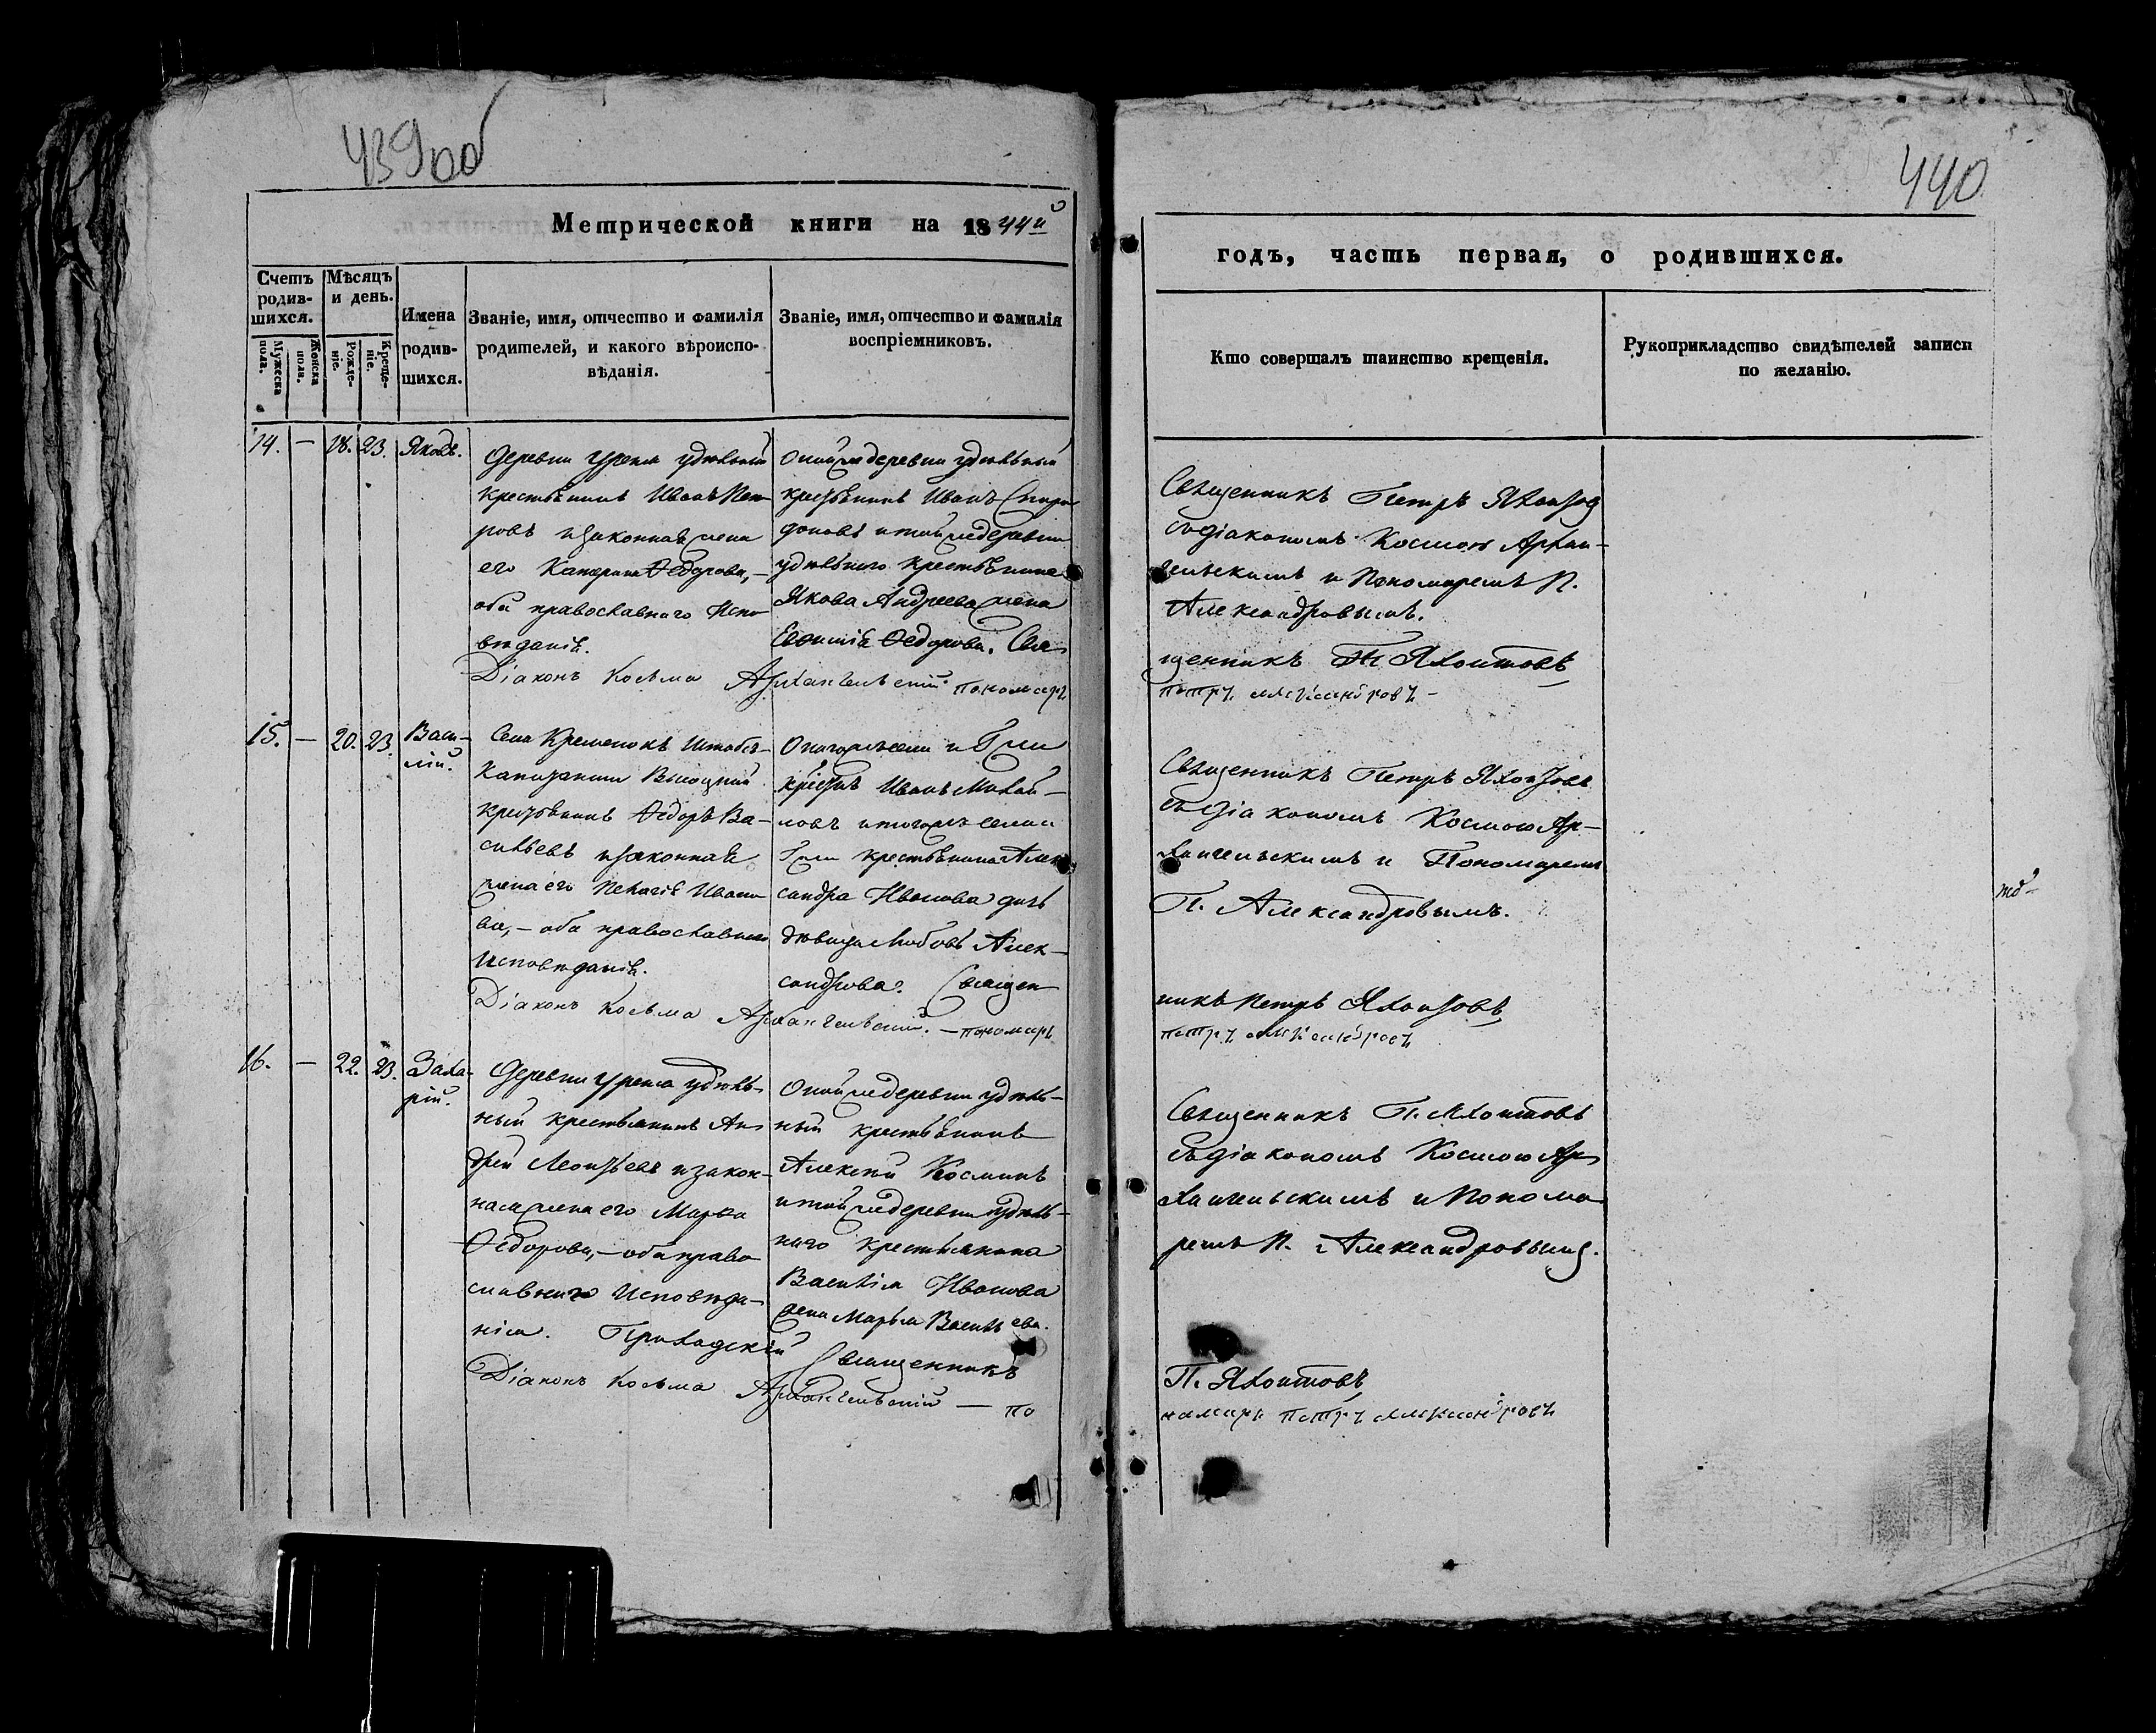 439об
440
Метрической книги на 1844й
годъ, часть первая, о родившихся.
Счетъ родив-
шихся.
Мѣсяцъ
и день.
Мужеска
пола.
Женска
пола.
Рожде-
ніе.
Креще-
ніе.
Имена
родив-
шихся.
Званіе, имя, отчество и фамилія
родителей, и какого вѣроиспо-
вѣданія.
Званіе, имя, отчество и фамилія
воспріемниковъ.
Кто совершалъ таинство крещенія.
Рукоприкладство свидѣтелей записи
по желанію.
14. — 18. 23. Яковъ.
Деревни Урема удѣльный
крестьянинъ Иванъ Пет-
ровъ и законная жена
его Катерина Ѳедорова, —
оба православнаго Испо-
вѣданія.
Оной же деревни удѣльный
крестьянинъ Иванъ Спири-
доновъ и той же деревни
удѣльнаго крестьянина
Якова Андреева жена
Евфимія Ѳедорова. Свя-
Священникъ Петръ Яхонтов
съ діакономъ Космою Архан-
гельскимъ и Пономаремъ П.
Александровымъ.
щенникъ П. Яхонтовъ
Діаконъ Косьма Архангельскій пономарь
петръ александровъ —
15. — 20. 23. Васи-
лій.
Села Кременокъ Штабсъ-
Капитанши Высоцкой
крестьянинъ Ѳедоръ Ва-
сильевъ и законная
жена его Пелагія Ивано-
ва, — оба православнаго
Исповѣданія.
Онаго же села и Г-жи
крестьян. Иванъ Михай-
ловъ и того же села и
Г-жи крестьянина Алек-
сандра Иванова дочь
дѣвица Любовь Алек-
сандрова. Священ-
Священникъ Петръ Яхонтовъ
съ діакономъ Космою Ар-
хангельскимъ и Пономаремъ
П. Александровымъ.
никъ Петръ Яхонтовъ
Діаконъ Косьма Архангельскій. — пономарь
петръ александровъ
16. — 22. 23. Заха-
рій.
Деревни Урема удѣль-
ный крестьянинъ Ан-
дрей Леонтьевъ и закон-
ная жена его Марѳа
Ѳедорова, — оба право-
славнаго Исповѣда-
нія. Приходскій
Оной же деревни удѣль-
ный крестьянинъ
Алексѣй Косминъ
и той же деревни удѣль-
наго крестьянина
Василія Иванова
жена Марья Васильева.
Священникъ
Священникъ П. Яхонтовъ
съ діакономъ Космою Ар-
хангельскимъ и Понома-
ремъ П. Александровымъ.
П. Яхонтовъ
Діаконъ Косьма Архангельскій — по
намарь петръ александровъ